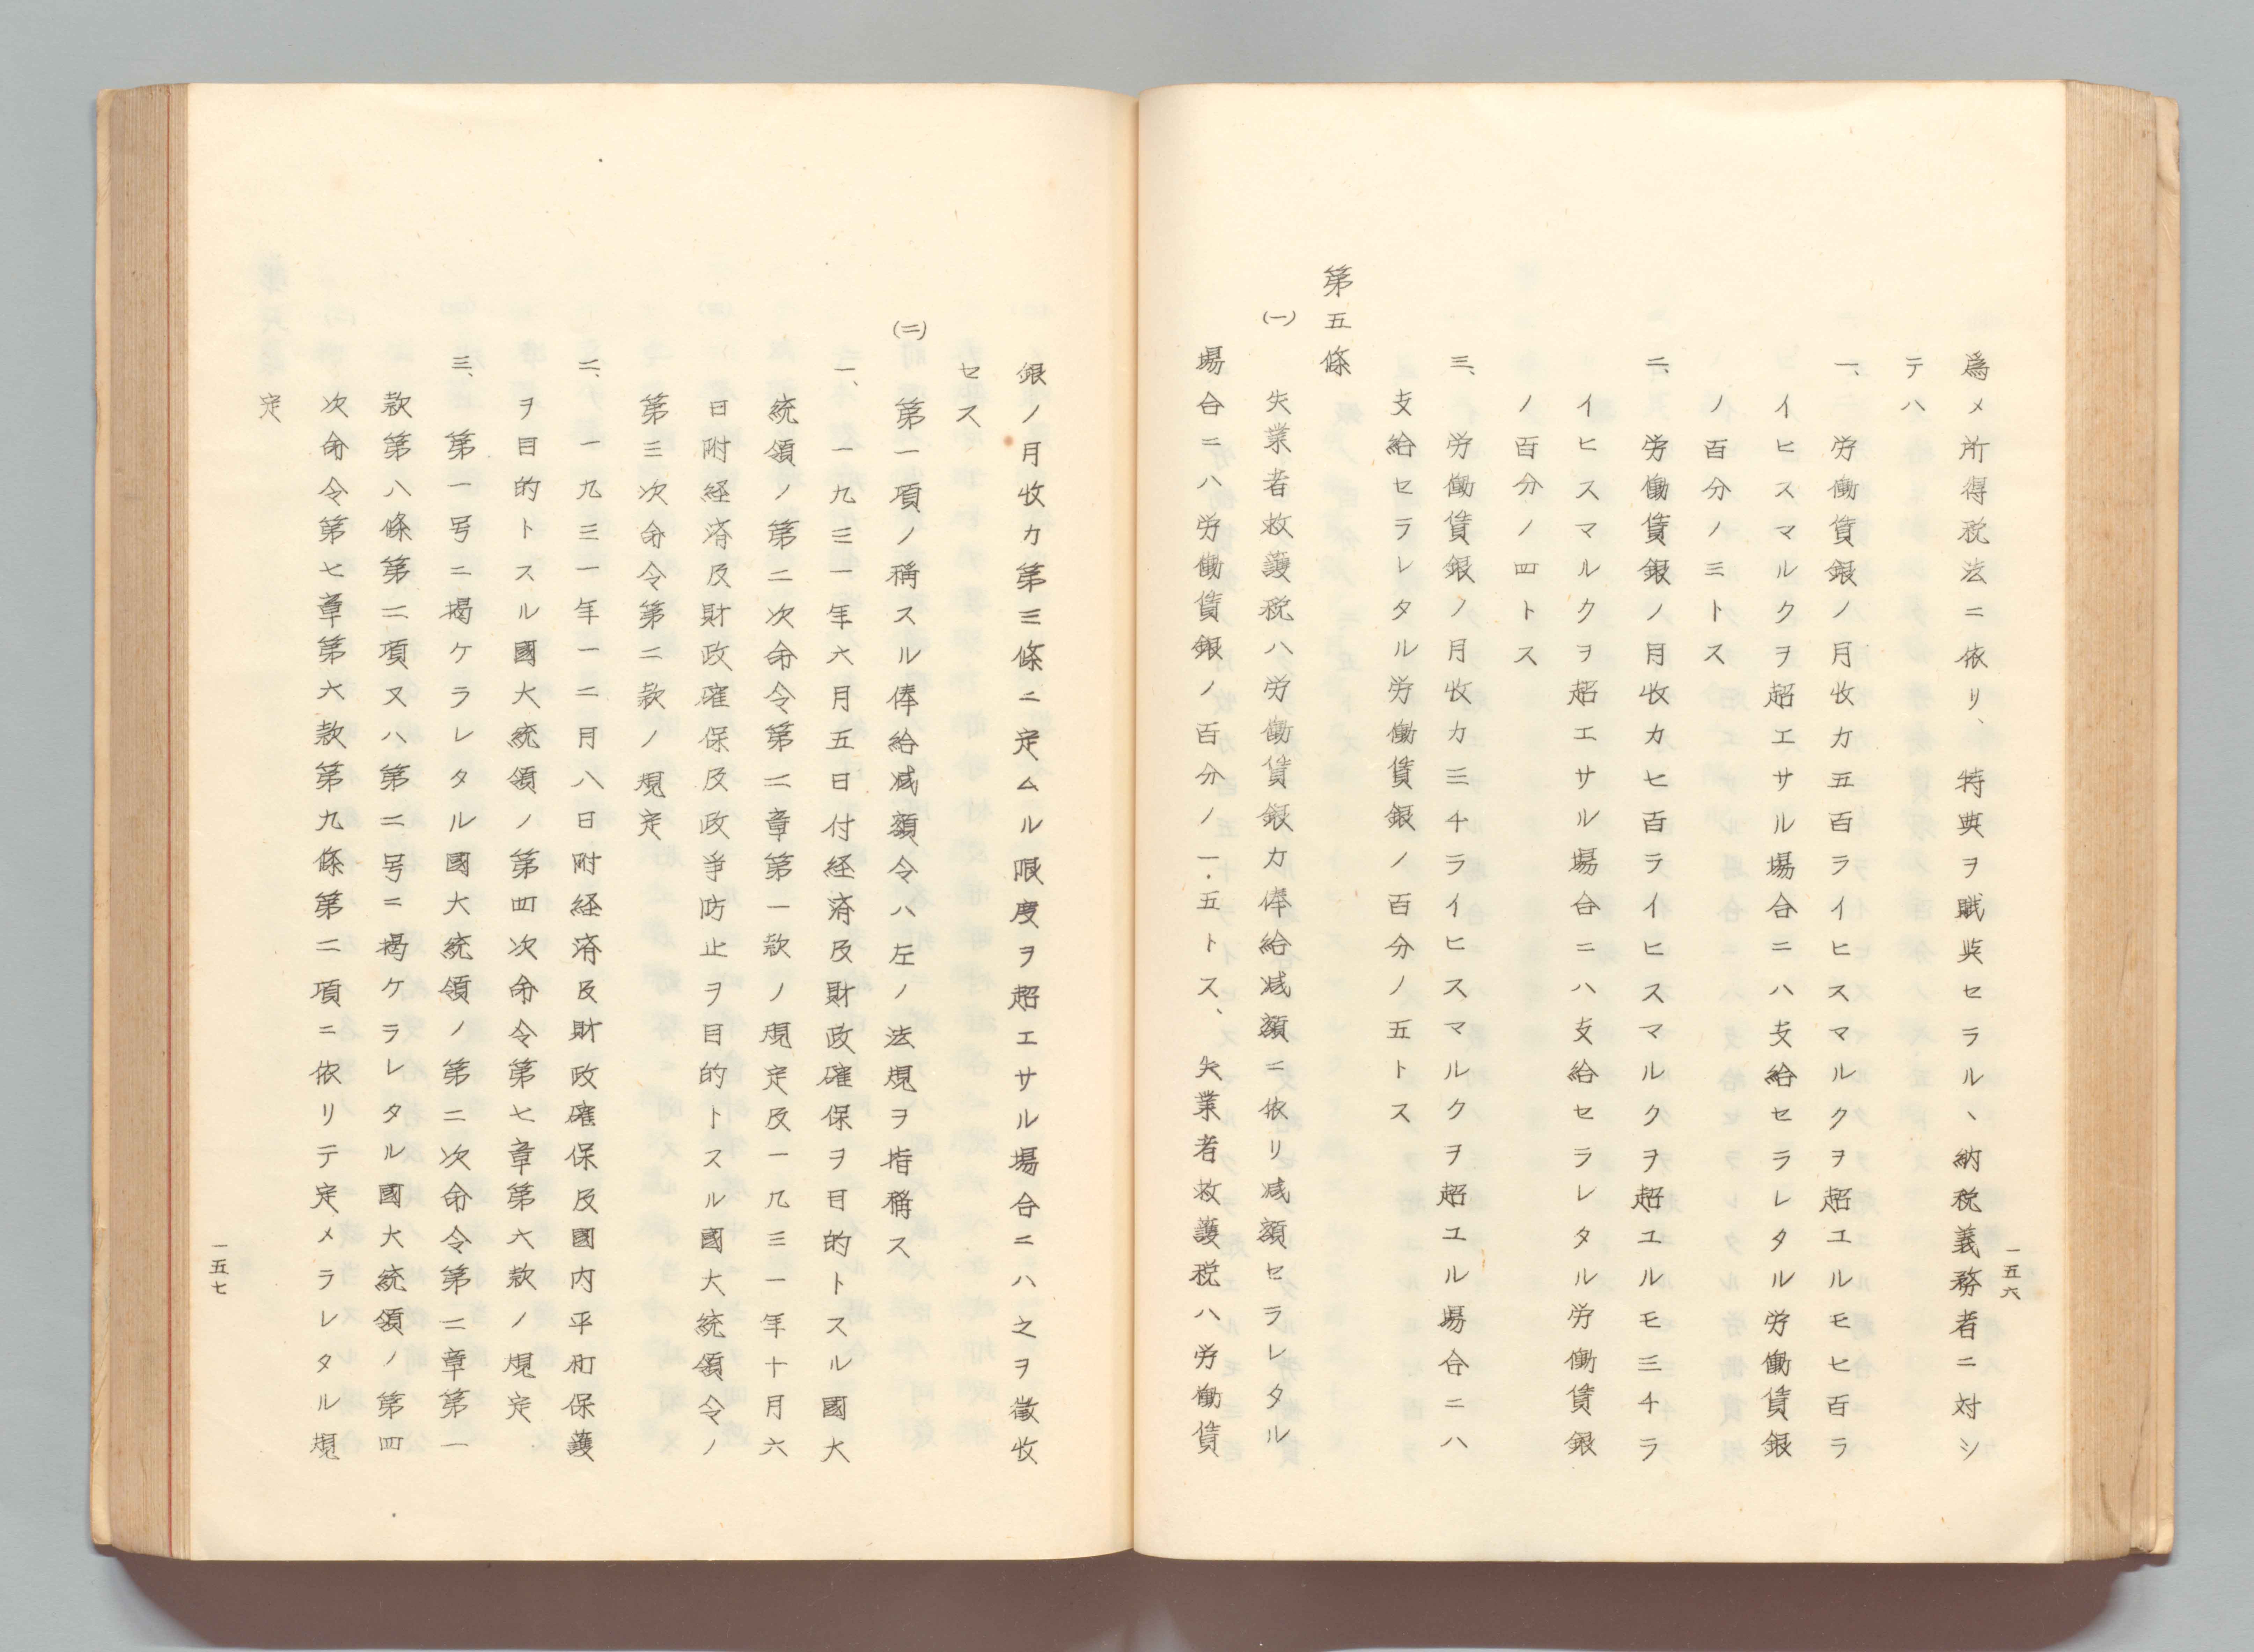 一五六
爲メ所得税法ニ依リ、特典ヲ賦與セラルヽ納税義務者ニ対シ
テハ
一、労働賃銀ノ月收カ五百ライヒスマルクヲ超エルモ七百ラ
イヒスマルクヲ超エサル場合ニハ支給セラレタル労働賃銀
ノ百分ノ三トス
二、労働賃銀ノ月收カ七百ライヒスマルクヲ超エルモ三千ラ
イヒスマルクヲ超エサル場合ニハ支給セラレタル労働賃銀
ノ百分ノ四トス
三、労働賃銀ノ月收カ三千ライヒスマルクヲ超エル場合ニハ
支給セラレタル労働賃銀ノ百分ノ五トス
第五條
(一)失業者救護税ハ労働賃銀カ俸給减額ニ依リ减額セラレタル
場合ニハ労働賃銀ノ百分ノ一・五トス、失業者救護税ハ労働賃
銀ノ月收カ第三條ニ定ムル限度ヲ超エサル場合ニハ之ヲ徴收
セス
(二)第一項ノ稱スル俸給减額令ハ左ノ法規ヲ指稱ス
一、一九三一年六月五日付経済及財政確保ヲ目的トスル國大
統領ノ第二次命令第二章第一款ノ規定及一九三一年十月六
日附経済及財政確保及政争防止ヲ目的トスル國大統領令ノ
第三次命令第二款ノ規定
二、一九三一年一二月八日附経済及財政確保及國内平和保護
ヲ目的トスル國大統領ノ第四次命令第七章第六款ノ規定
三、第一号ニ掲ケラレタル國大統領ノ第二次命令第二章第一
款第八條第二項又ハ第二号ニ掲ケラレタル國大統領ノ第四
次命令第七章第六款第九條第二項ニ依リテ定メラレタル規
定
一五七